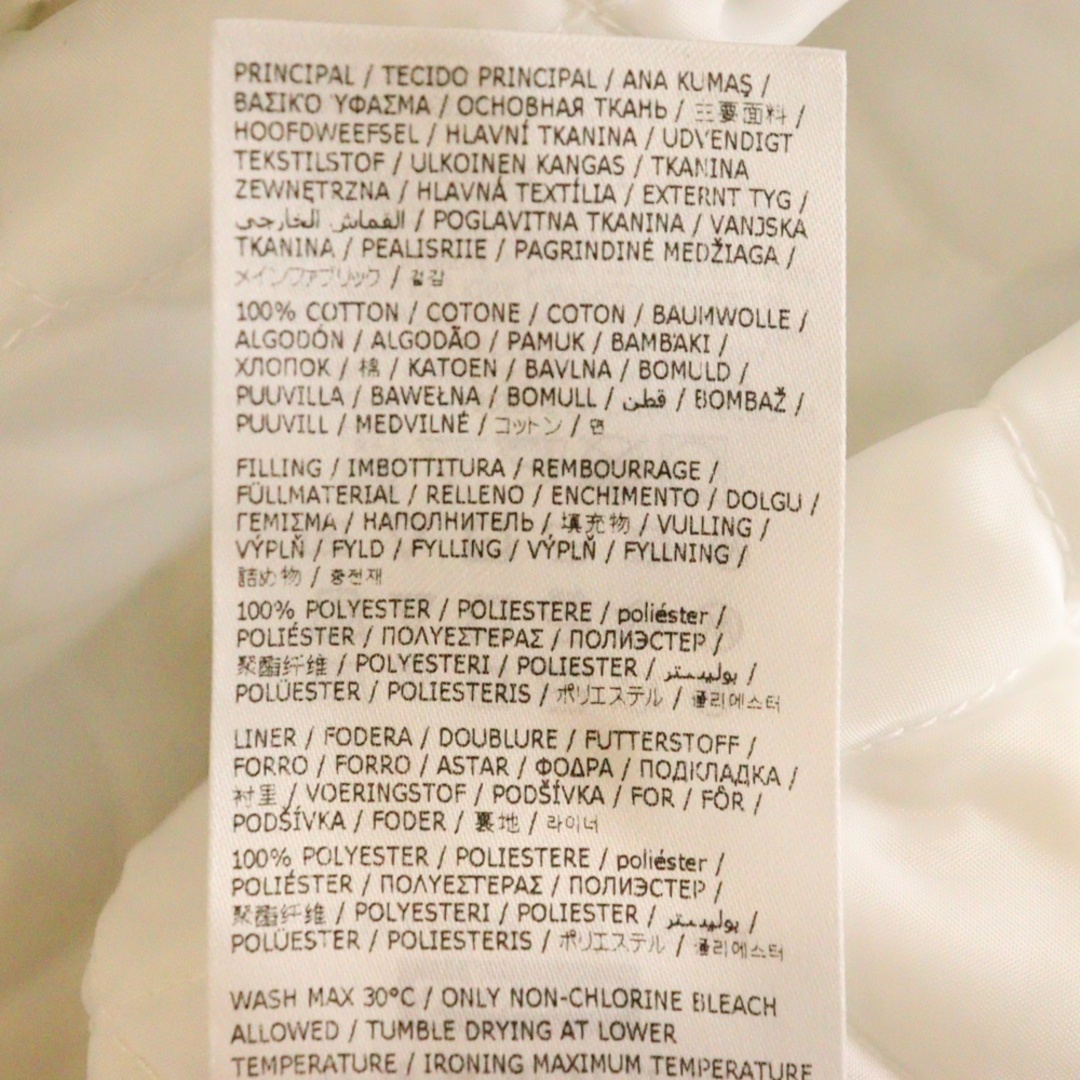 PRINCIPAL / TECIDO PRINCIPAL / ANA KUMAŞ /
ΒΑΣΙΚΌ ΎΦΑΣΜΑ / ОСНОВНАЯ ТКАНЬ / 主要面料 /
HOOFDWEEFSEL / HLAVNÍ TKANINA / UDVENDIGT
TEKSTILSTOF / ULKOINEN KANGAS / TKANINA
ZEWNĘTRZNA / HLAVNÁ TEXTÍLIA / EXTERNT TYG /
القماش الخارجي / POGLAVITNA TKANINA / VANJSKA
TKANINA / PEALISRIIE / PAGRINDINĖ MEDŽIAGA /
メインファブリック / 겉감
100% COTTON / COTONE / COTON / BAUMWOLLE /
ALGODÓN / ALGODÃO / PAMUK / ΒΑΜΒΆΚΙ /
ХЛОПОК / 棉 / KATOEN / BAVLNA / BOMULD /
PUUVILLA / BAWEŁNA / BOMULL / قطن / BOMBAŽ /
PUUVILL / MEDVILNĖ / コットン / 면
FILLING / IMBOTTITURA / REMBOURRAGE /
FÜLLMATERIAL / RELLENO / ENCHIMENTO / DOLGU /
ΓΕΜΙΣΜΑ / НАПОЛНИТЕЛЬ / 填充物 / VULLING /
VÝPLŇ / FYLD / FYLLING / VÝPLŇ / FYLLNING /
詰め物 / 충전재
100% POLYESTER / POLIESTERE / poliéster /
POLIÉSTER / ΠΟΛΥΕΣΤΕΡΑΣ / ПОЛИЭСТЕР /
聚酯纤维 / POLYESTERI / POLIESTER / بوليستر /
POLÜESTER / POLIESTERIS / ポリエステル / 폴리에스터
LINER / FODERA / DOUBLURE / FUTTERSTOFF /
FORRO / FORRO / ASTAR / ΦΟΔΡΑ / ПОДКЛАДКА /
衬里 / VOERINGSTOF / PODŠÍVKA / FOR / FÔR /
PODŠÍVKA / FODER / 裏地 / 라이너
100% POLYESTER / POLIESTERE / poliéster /
POLIÉSTER / ΠΟΛΥΕΣΤΕΡΑΣ / ПОЛИЭСТЕР /
聚酯纤维 / POLYESTERI / POLIESTER / بوليستر /
POLÜESTER / POLIESTERIS / ポリエステル / 폴리에스터
WASH MAX 30°C / ONLY NON-CHLORINE BLEACH
ALLOWED / TUMBLE DRYING AT LOWER
TEMPERATURE / IRONING MAXIMUM TEMPERATURE